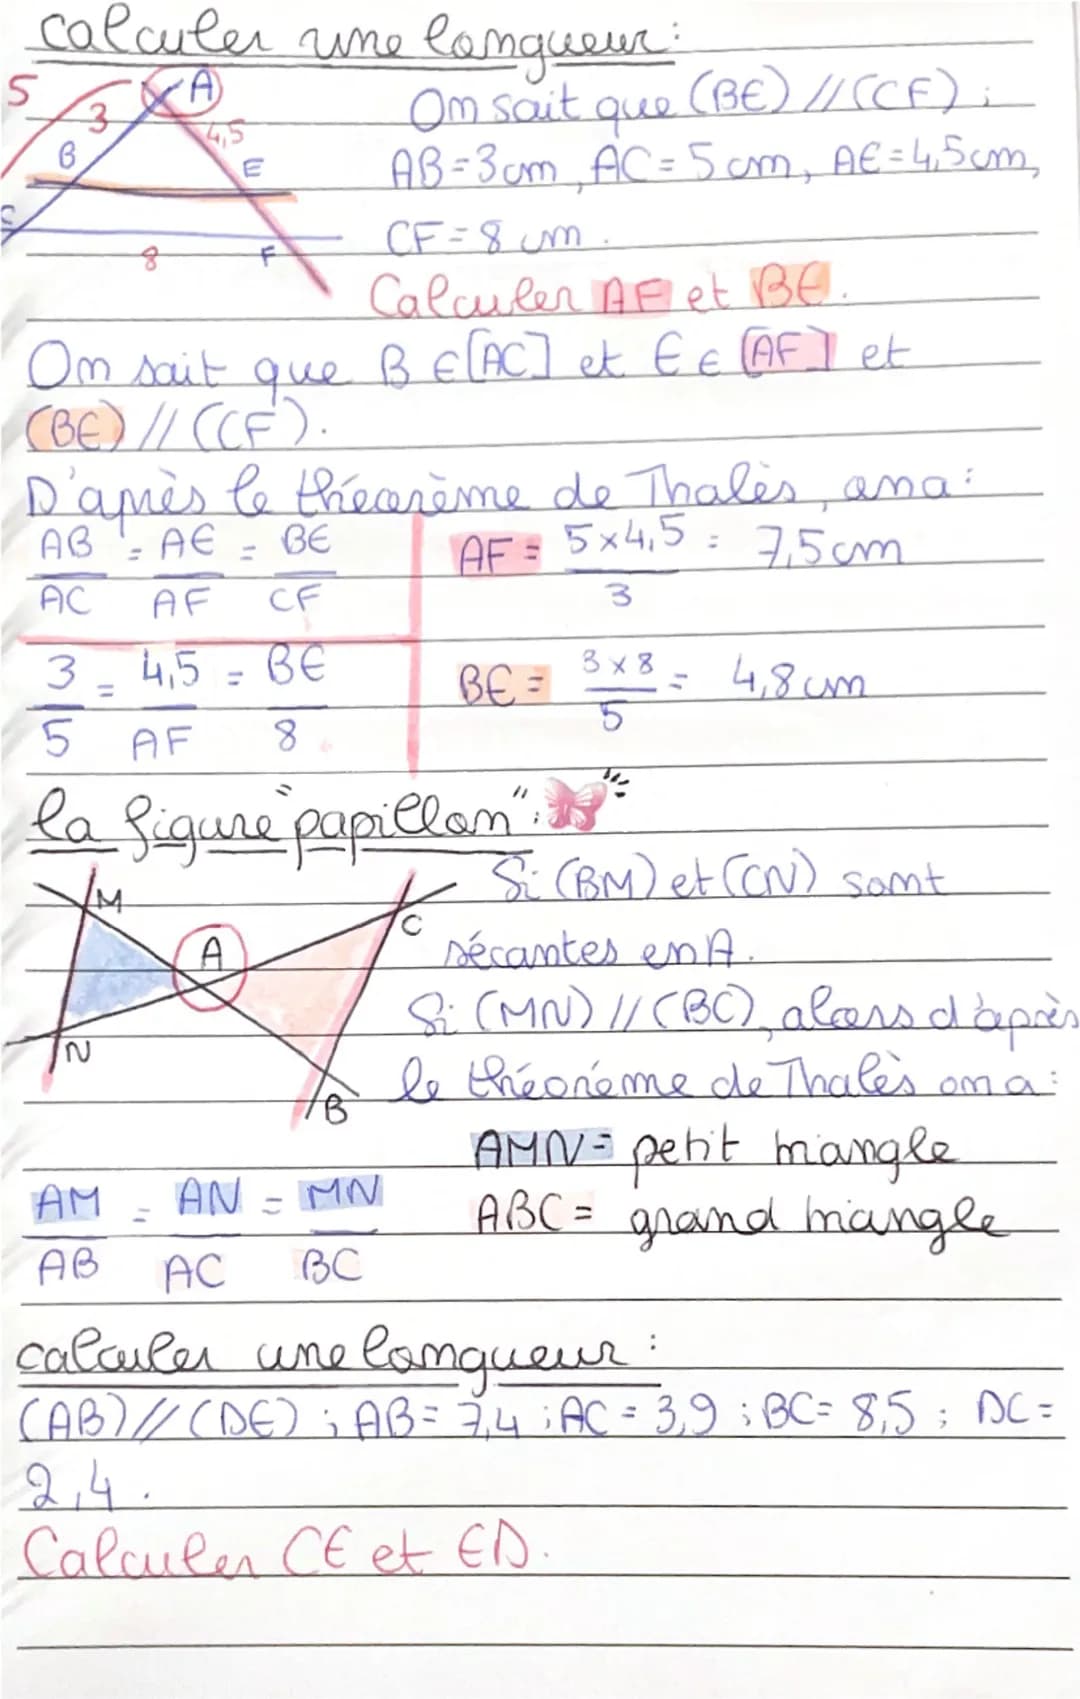 Calculer une longueur :
5
3
A
4,5
B
E
C
8
F
On sait que (BE) // (CF) ;
AB = 3 cm, AC = 5 cm, AE = 4,5 cm,
CF = 8 cm.
Calculer AF et BE.
On sait que B ∈ [AC] et E ∈ [AF] et
(BE) // (CF).
D'après le théorème de Thalès, on a :
AB = AE = BE
AC AF CF
AF = 5 x 4,5 = 7,5 cm
3
3 = 4,5 = BE
5 AF 8
BE = 3 x 8 = 4,8 cm
5
la figure "papillon" :
M
A
C
N
B
Si (BM) et (CN) sont
sécantes en A.
Si (MN) // (BC), alors d'après
le théorème de Thalès on a :
AMN = petit triangle
ABC = grand triangle
AM = AN = MN
AB AC BC
calculer une longueur :
(AB) // (DE) ; AB = 7,4 ; AC = 3,9 ; BC = 8,5 ; DC =
2,4.
Calculer CE et ED.